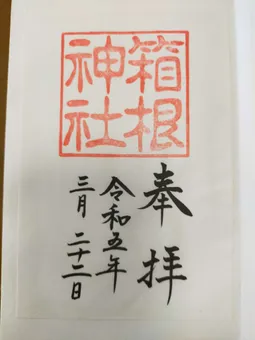 箱根
神社
奉拝
令和五年
三月二十二日